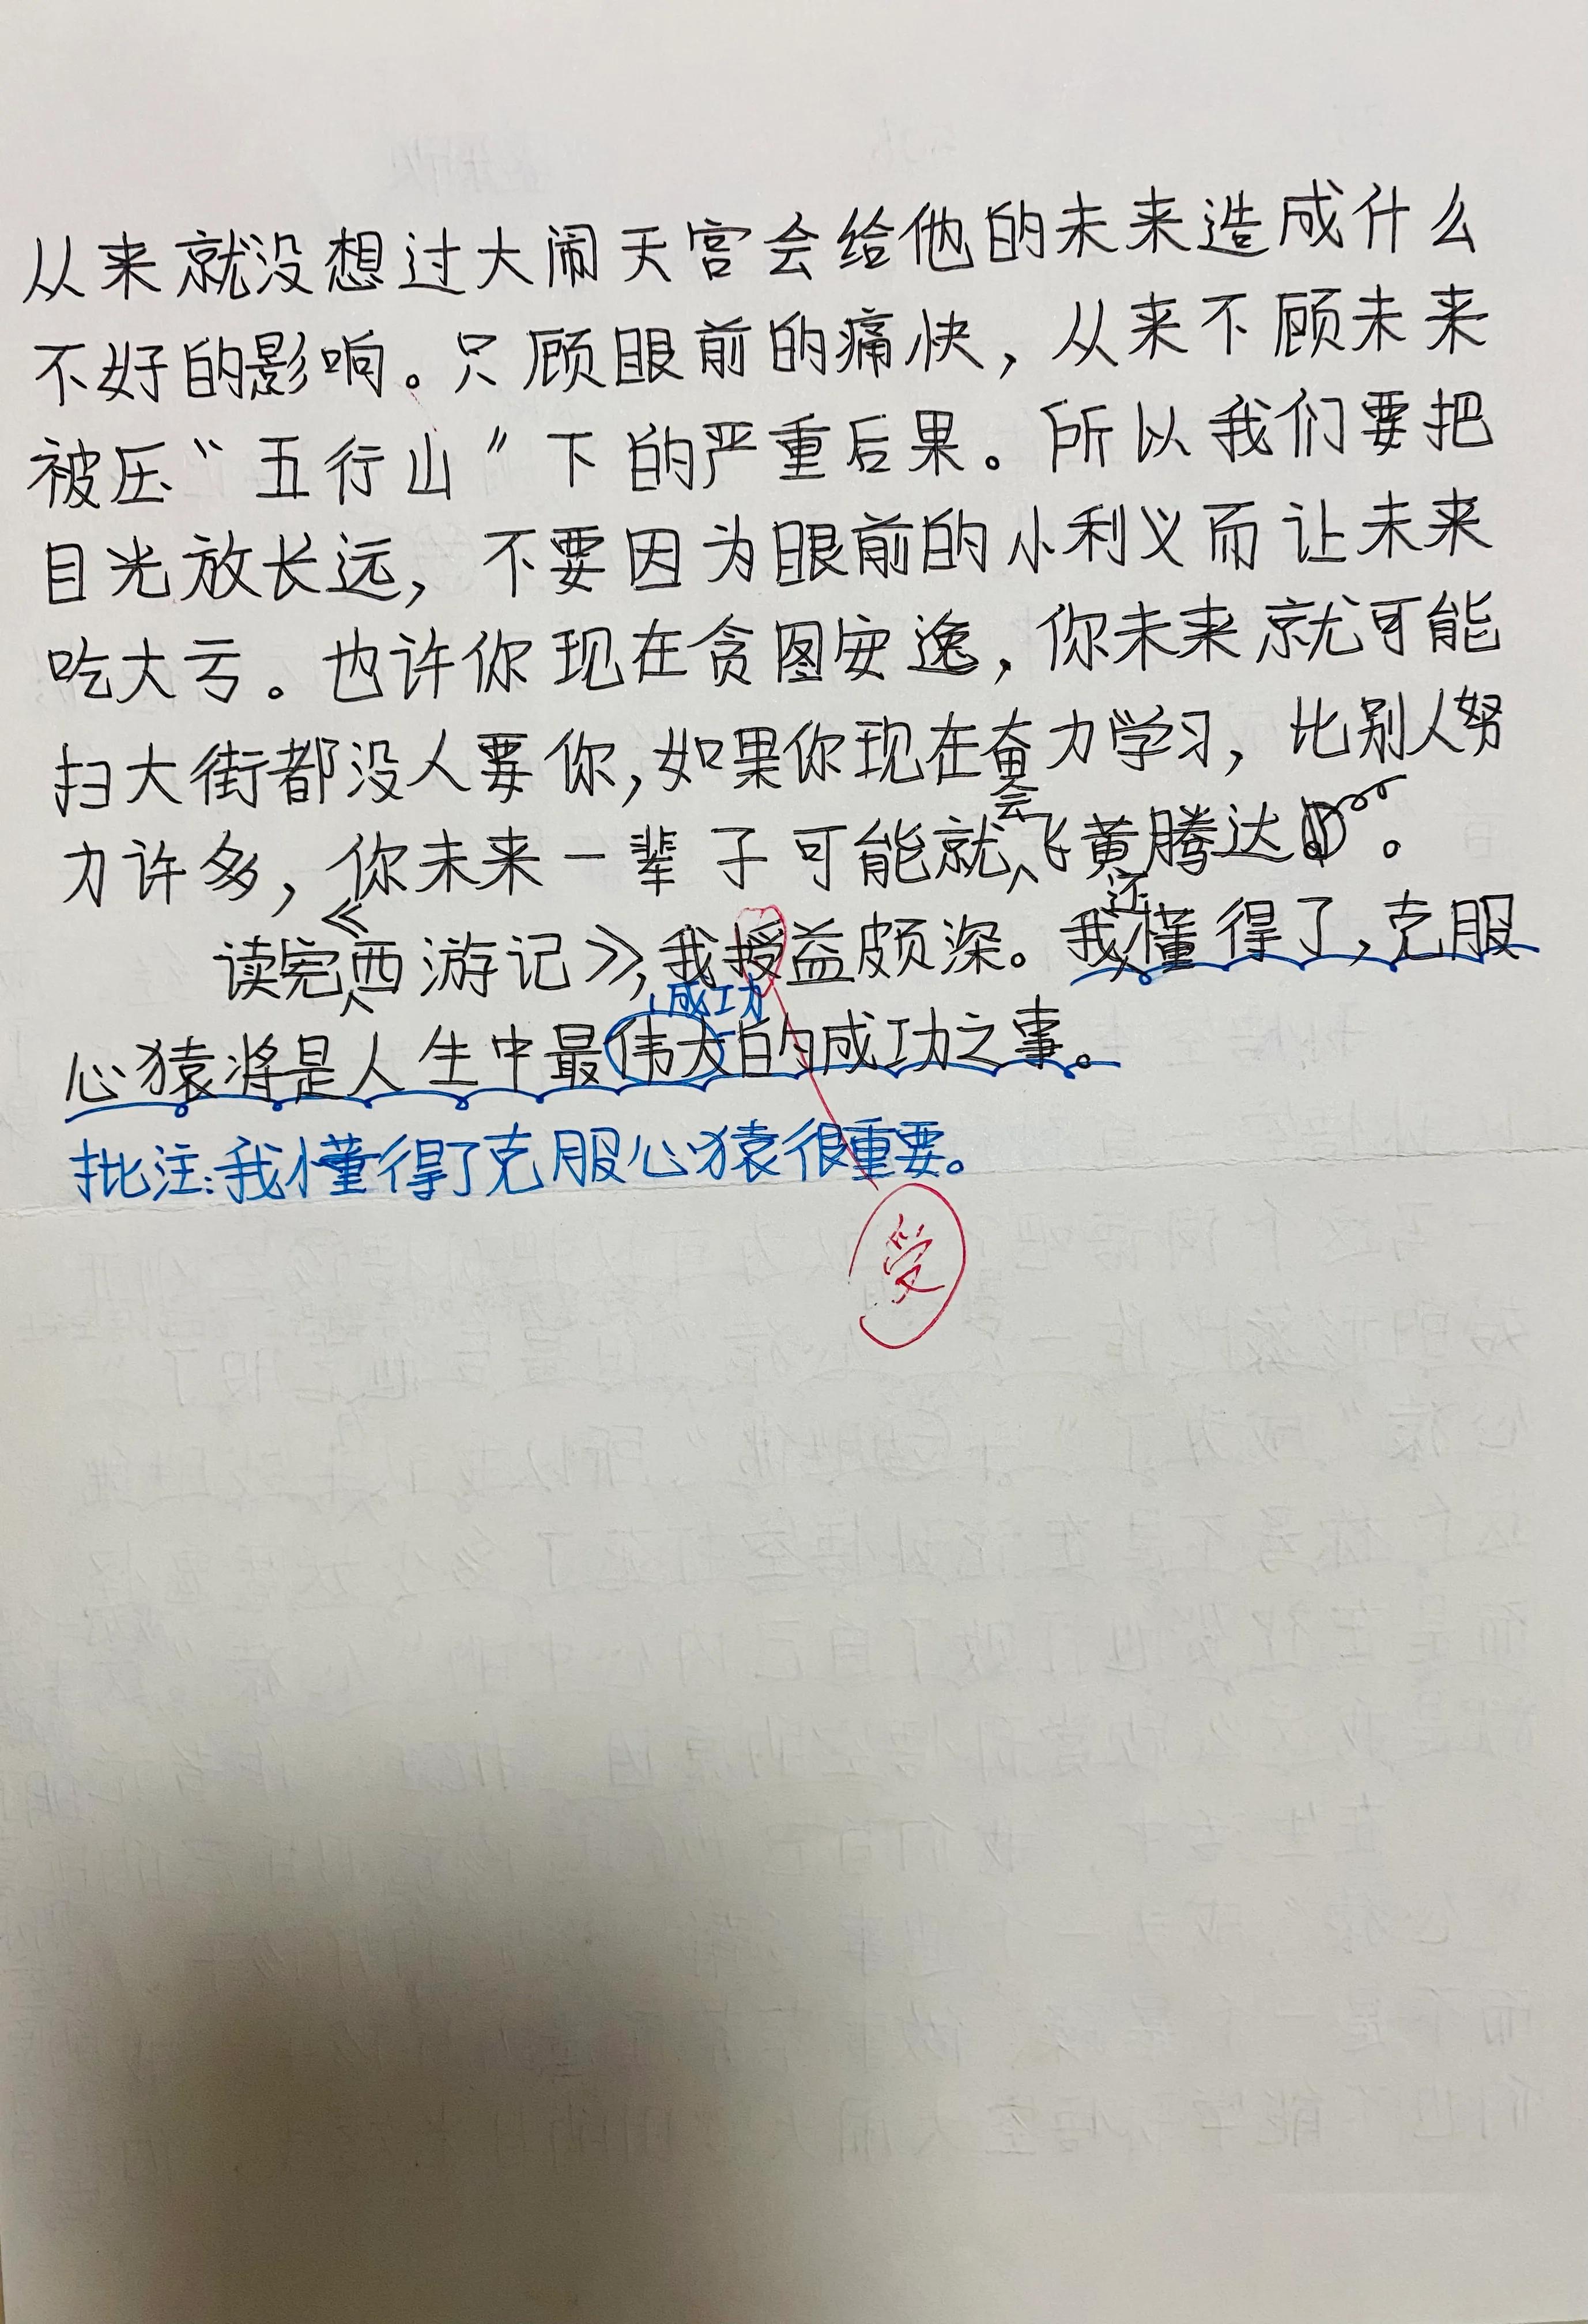 从来就没想过大闹天宫会给他的未来造成什么
不好的影响。只顾眼前的痛快，从来不顾未来
被压“五行山”下的严重后果。所以我们要把
目光放长远，不要因为眼前的小利义而让未来
吃大亏。也许你现在贪图安逸，你未来就可能
扫大街都没人要你，如果你现在奋力学习，比别人努
力许多，你未来一辈子可能就会飞黄腾达。
读完《西游记》，我授益颇深。我还懂得了，克服
成功
心猿将是人生中最伟大的成功之事。
批注：我懂得了克服心猿很重要。
受